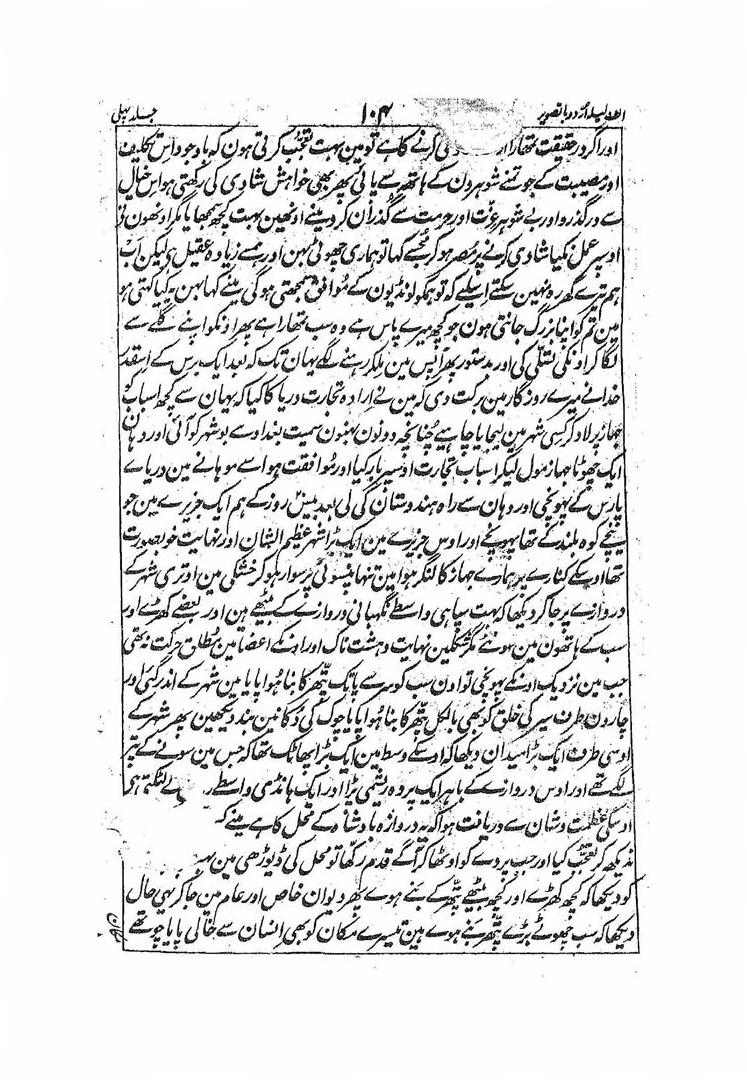 الف لیلہ اردو با تصویر ۱۰۴ جلد پہلی
اور اگر درحقیقت تمھارا ارادہ شادی کرنے کا ہے تو مین بہت تعجّب کرتی ہون کہ باوجود اس تکلیف
اور مصیبت کے جو تمنے شوہرون کے ہاتھ سے پائی پھر بھی خواہش شادی کی رکھتی ہو اس خیال
سے درگذرو اور بے شوہر عزّت اور حرمت سے گذران کرو مینے اونھین بہت کچھ سمجھایا مگر اونھون نے
اوسپر عمل نکیا شادی کرنے پر مُصر ہو کر مُجھسے کہا تو ہماری چھوٹی بہن اور ہمسے زیادہ عقیل ہی لیکن اب
ہم تیرے گھر رہ نہین سکتے اسلیے کہ تو ہمکو لونڈیون کے مُوافق سمجھتی ہوگی مینے کہا بہن یہ کیا کہتی ہو
مین تم کو اپنا بزرگ جانتی ہون جو کچھ میرے پاس ہے وہ سب تمھارا ہے پھر اونکو اپنے گلے سے
لگا کر اونکی تسلّی کی اور بدستور پھر آپس مین ملکر رہنے لگے یہان تک کہ بعد ایک برس کے اسقدر
خدا نے میرے روزگار مین برکت دی کہ مین نے ارادہ تجارت دریا کا کیا کہ یہان سے کچھ اسباب
جہاز پر لاد کر کسی شہر مین لیجایا چاہیے چُنانچہ دونون بہنون سمیت بغداد سے بوشہر کو آئی اور وہان
ایک چھوٹا جہاز مول لیکر اسباب تجارت اوسپر بار کیا اور مُوافقت ہوا سے موہانے مین دریاے
پارس کے پہونچی اور وہان سے راہ ہندوستان کی لی بعد بیس روز کے ہم ایک جزیرے مین جو
نیچے کوہ بلند کے تھا پہونچے اور اوس جزیرے مین ایک بڑا شہر عظیم الشان اور نہایت خوبصورت
تھا اوسکے کنارے پر ہمارے جہاز کا لنگر ہوا مین تنہا پنسوئی پر سوار ہو کر خشکی مین اوتری شہر کے
دروازے پر جا کر دیکھا کہ بہت سپاہی واسطے نگہبانی دروازے کے بیٹھے ہین اور بعضے کھڑے اور
سب کے ہاتھون مین سونٹے مگر شکلین نہایت وہشت ناک اور اونکے اعضا مین مُطلق حرکت نہ تھی
جب مین نزدیک اونکے پہونچی تو اون سب کو سر سے پا تک پتّھر کا بنا ہوا پایا مین شہر کے اندر گئی اور
چارون طرف سیر کی خلق کو بھی بالکل پتّھر کا بنا ہوا پایا چوک کی دُکانین بند دیکھین پھر شہر کے
اوسی طرف ایک بڑا میدان دیکھا کہ اوسکے وسط مین ایک بڑا پھاٹک تھا کہ جس مین سونے کے پتّر
لگے تھے اور اوس دروازے کے باہر ایک پردہ ریشمی پڑا اور ایک ہانڈی واسطے لٹکتی ہی
اوسکی عظمت و شان سے دریافت ہوا کہ یہ دروازہ بادشاہ کے محل کا ہے مینے کہ
ندیکھ کر تعجّب کیا اور جب پردے کو اوٹھا کر آگے قدم رکھّا تو محل کی ڈیوڑھی مین
کو دیکھا کہ کچھ کھڑے اور کچھ بیٹھے پتّھر کے بنے ہوے پھر دیوان خاص اور عام مین جا کر یہی حال
دیکھا کہ سب چھوٹے بڑے پتّھر بنے ہوے ہین تیسرے مکان کو بھی انسان سے خالی پایا چوتھے
مکان